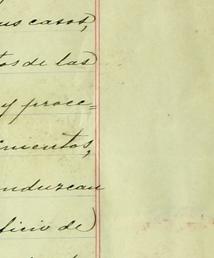 us casos,
tos de las
y proce=
imientos,
nduzcan
ficio de